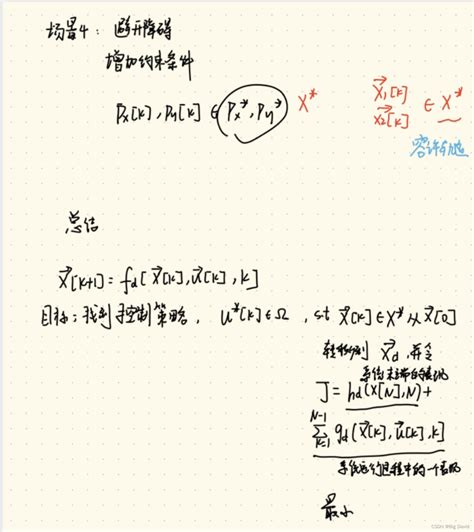 场景4: 避开障碍
增加约束条件
Px[k], Py[k] ∈ Px*, Py* X*
x⃗₁[k]
x⃗₂[k] ∈ X*
容许轨迹
总结
x⃗[k+1] = fd[x⃗[k], u⃗[k], k]
目标: 找到控制策略, u*[k] ∈ Ω, st x⃗[k] ∈ X* 从 x⃗[0]
转移到 x⃗d, 并令
系统末端的表现
J = hd(x[N], N) +
N-1
∑ gd(x⃗[k], u⃗[k], k]
k=1
系统运行过程中的一个表现
最小